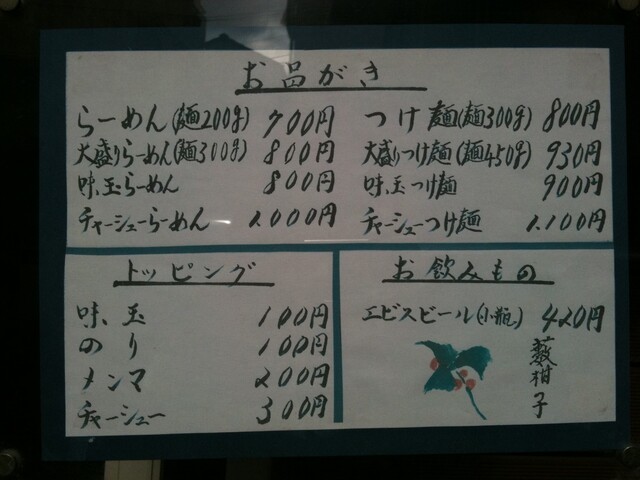 お品がき
らーめん(麺200g) 700円
大盛りらーめん(麺300g) 800円
味玉らーめん 800円
チャーシューらーめん 1.000円
つけ麺(麺300g) 800円
大盛りつけ麺(麺450g) 930円
味玉つけ麺 900円
チャーシューつけ麺 1.100円
トッピング
味玉 100円
のり 100円
メンマ 200円
チャーシュー 300円
お飲みもの
エビスビール(小瓶) 420円
藪柑子